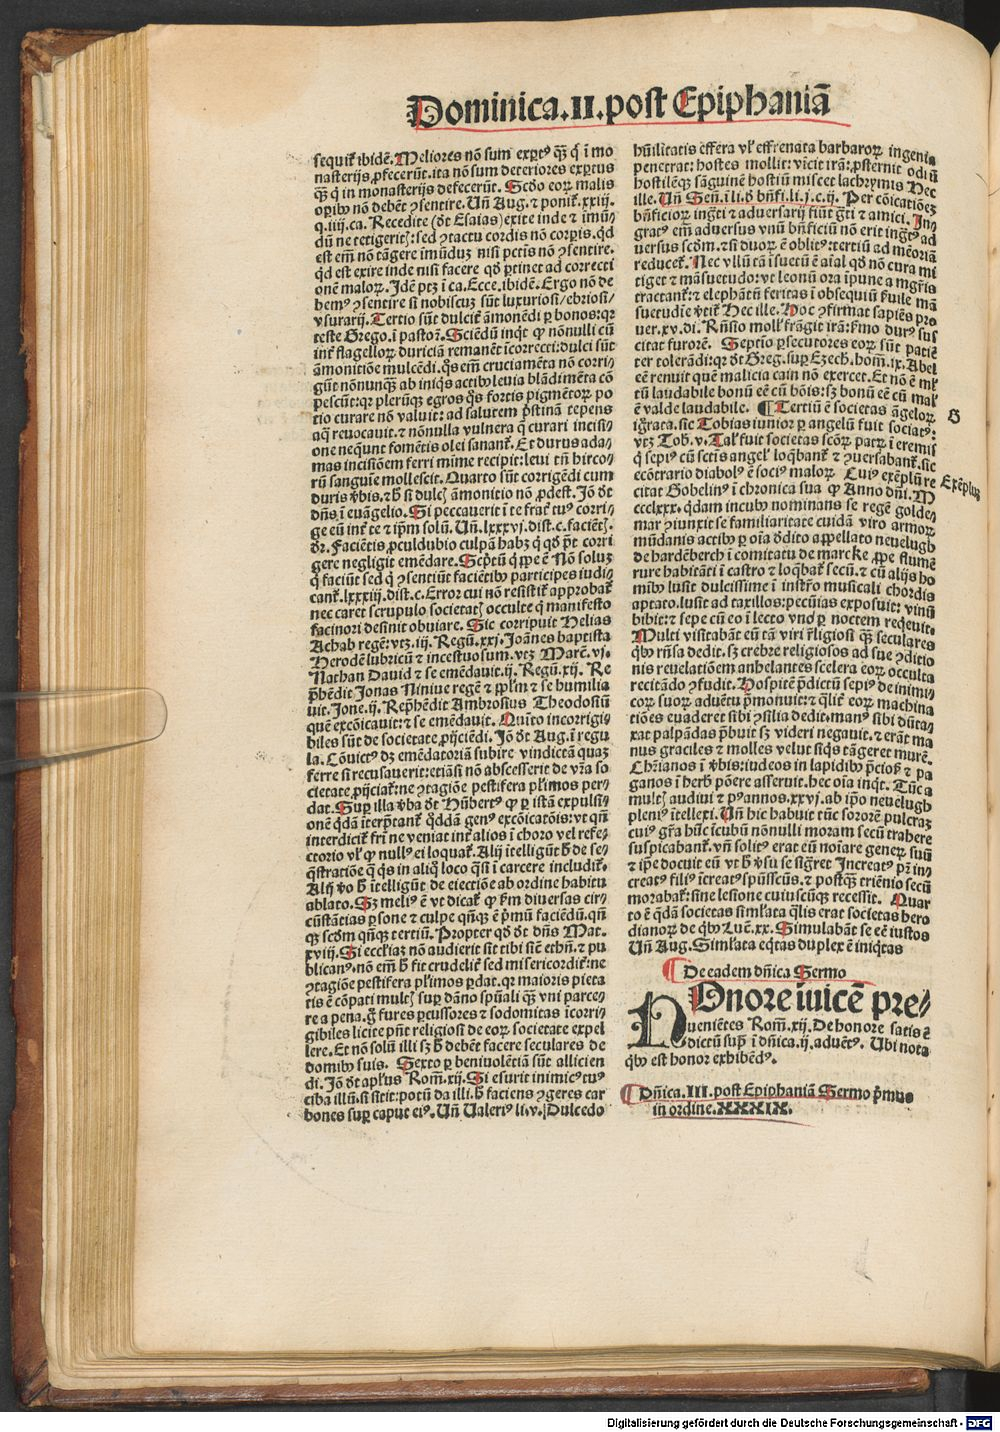 Dominica.II.post Epiphaniā
sequit᷑ ibidē. Meliores nō sum exꝑtꝰ qꝫ̄ q̇ ī mo
nasterijs ꝓfecerūt. ita nō sum deteriores exꝑtus
qꝫ̄ q̇ in monasterijs defecerūt. Scd̄o eoꝝ malis
oꝑibꝰ nō debēt ꝯsentire. Uñ Aug. ⁊ ponit᷑. xxij.
q.iiij.ca. Recedite (dt̄ Esaias) exite inde ⁊ imū/
dū ne tetigerit᷑: sed ꝯtactu cordis nō corꝑis. qd
est em̄ nō tāgere imūduꝫ nisi pctīs nō ꝯsentire.
qd est exire inde nisi facere qḋ ꝑtinet ad correcti
onē maloꝝ. Idē ptꝫ ī ca. Ecce. ibidē. Ergo nō de
bemꝰ ꝯsentire si nobiscuꝫ sūt luxuriosi / ebriosi /
vsurarij. Tertio sūt dulcit᷑ āmonēdi ꝑ bonos: qꝛ
teste Grego. ī pastor. Sciēdū inqt ꝙ nōnulli cū
int᷑ flagelloꝝ duriciā remanēt īcorrecti: dulci sūt
āmonitiōe mulcēdi. qͦs em̄ cruciamēta nō corri/
gūt nōnunqꝫ̄ ab iniqͥs actibꝰ leuia blādimēta cō
pescūt: qꝛ pleruqꝫ egros qͦs fortis pigmētoꝝ po
tio curare nō valuit: ad salutem pͥstinā tepens
aqͣ reuocauit. ⁊ nōnulla vulnera q̄ curari incisi/
one neqūnt fomētis olei sanant᷑. Et durus ada/
mas incisiōem ferri mīme recipit: leui tn̄ hirco/
rū sanguīe mollescit. Quarto sūt corrigēdi cum
duris v̄bis. ⁊ h̄ si dulcꝭ āmonitio nō ꝓdest. Iō dt̄
dn̄s ī euāgelio. Si peccauerit ī te frat᷑ tuꝰ corri/
ge eū int᷑ te ⁊ ip̄m solū. Uñ. lxxxvj. dist. c. faciētꝭ.
dr̄. Faciētis ꝓculdubio culpā habꝫ q̇ qḋ pōt corri
gere negligit emēdare. Sc̄ptū q̇ppe ē Nō soluꝫ
q̇ faciūt sed q̇ ꝯsentiūt faciētibꝰ participes iudi/
cant᷑. lxxxiij. dist. c. Error cui nō resistit᷑ approbat᷑
nec caret scrupulo societatꝭ occulte q̇ manifesto
facinori desinit obuiare. Sic corripuit Helias
Achab regē: vtꝫ. iij. Regū. xxj. Joānes baptista
Herodē lubricū ⁊ incestuosum. vtꝫ Marc̄. vj.
Nathan Dauid ⁊ se emēdauit. ij. Regū. xij. Re
pͣhēdit Jonas Niniue regē ⁊ ppl̄m ⁊ se humilia
uit. Jone. ij. Rep̄hēdit Ambrosius Theodosiū
quē excōicauit: ⁊ se emēdauit. Quīto incorrigi/
biles sūt de societate ꝓijciēdi. Iō dt̄ Aug. ī regu
la. Cōuictꝰ dꝫ emēdatoriā subire vindictā quaꝫ
ferre si recusauerit: etiāsi nō abscesserit de vr̄a so
cietate ꝓijciat᷑: ne ꝯtagiōe pestifera pl̄imos per/
dat. Suꝑ illa v̄ba dt̄ Hūbertꝰ ꝙ ꝑ istā expulsi/
onē qͥdā īterp̄tant᷑ qͦddā genꝰ excōicatiōis: vt qn̄
interdicit᷑ fr̄i ne veniat int᷑ alios ī choro vel refe/
ctorio vl̓ ꝙ nullꝰ ei loquat᷑. Alij ītelligūt h̄ de se/
q̄stratiōe q̄ qͥs in aliqͦ loco qͣsi ī carcere includit᷑.
Alij v̓o h̄ ītelligūt de eiectiōe ab ordine habitu
ablato. Sꝫ meliꝰ ē vt dicat᷑ ꝙ ẜm diuersas cir/
cūstātias ꝑsone ⁊ culpe qn̄qꝫ ē pͥmū faciēdū. qn̄
qꝫ scd̄m qn̄qꝫ tertiū. Propter qḋ dt̄ dn̄s Mat.
xviij. Si eccl̄iaꝫ nō audierit sit tibi sic̄ ethn̄. ⁊ pu
blicanꝰ. nō em̄ h̄ fit crudelit᷑ sed misericordit᷑: ne
ꝯtagiōe pestifera pl̄imos ꝑdat. qꝛ maioris pieta
tis ē cōpati multꝭ suꝑ dāno spūali qꝫ̄ vni parce/
re a pena. g̊ fures ꝑcussores ⁊ sodomitas īcorri/
gibiles licite pn̄t religiosi de eoꝝ societate expel
lere. Et nō solū illi sꝫ h̄ debēt facere seculares de
domibꝰ suis. Sexto ꝑ beniuolētiā sūt allicien
di. Iō dt̄ apl̄us Rom̄. xij. Si esurit inimicꝰ tuꝰ
ciba illū. si sitit: potū da illi. h̄ faciens ꝯgeres car
bones suꝑ caput eiꝰ. Uñ Ualeriꝰ li. v. Dulcedo
hūilitatis effera vl̓ effrenata barbaroꝝ ingenia
penetrat: hostes mollit: vīcit irā: ꝓsternit odiū
hostilēqꝫ sāguinē hostiū miscet lachrymis Hec
ille. Uñ Sen̄. ī li. ḋ bn̄fi. li. j. c. ij. Per cōicatiōeꝫ
bn̄ficioꝝ ingͣti ⁊ aduersarij fiūt gͣti ⁊ amici. In/
gratꝰ em̄ aduersus vnū bn̄ficiū nō erit ingͣtꝰ ad
uersus scd̄m. ⁊ si duoꝝ ē oblitꝰ: tertiū ad mēoriā
reducet᷑. Nec vllū tā īsuetū ē aīal qḋ nō cura mi
tiget ⁊ māsuetudo: vt leonū ora īpune a mgr̄is
tractant᷑: ⁊ elephātū feritas ī obsequiū ẜuile mā
suetudīe v̓tit᷑ Hec ille. Hoc ꝯfirmat sapiēs pro
uer. xv. di. Rn̄sio mollꝭ frāgit irā: ẜmo durꝰ sus
citat furorē. Septīo ꝑsecutores eoꝝ sūt patiē
ter tolerādi: qꝛ dt̄ Greg. suꝑ Ezech. hom̄. ix. Abel
eē renuit quē malicia cain nō exercet. Et nō ē ml̓
tū laudabile bonū eē cū bōis: sꝫ bonū eē cū mal̓
ē valde laudabile. ¶ Tertiū ē societas āgeloꝝ
īgr̄ata. sic Tobias iunior ꝑ angelū fuit sociatꝰ:
vtꝫ Tob. v. Tal̓ fuit societas scōꝝ patꝝ ī eremis
q̇ sepiꝰ cū sctīs angel̓ loqͣbant᷑ ⁊ ꝯuersabant᷑. sic
ecōtrario diabolꝰ ē sociꝰ maloꝝ Cuiꝰ exēplū re
citat Gobelinꝰ ī chronica sua ꝙ Anno dn̄i. M
cccclxxx. qͥdam incubꝰ nominans se regē golde/
mar ꝯiunxit se familiaritate cuidā viro armoꝝ
mūdanis actibꝰ ꝑ oīa ḋdito appellato neuelugh
de hardēberch ī comitatu de marcke ꝓpe flumē
rure habitāti ī castro ⁊ loqͣbat᷑ secū. ⁊ cū alijs ho
mībꝰ lusit dulcissime ī instr̄o musicali chordis
aptato. lusit ad taxillos: pecūias exposuit: vinū
bibit: ⁊ sepe cū eo ī lecto vnoꝑ noctem reqͥeuit.
Multi visitabāt eū tā viri rl̄igiosi qꝫ̄ seculares
qͥbꝰ rn̄sa dedit. sꝫ crebre religiosos ad sue ꝯditio
nis reuelatiōem anhelantes scelera eoꝝ occulta
recitādo ꝯfudit. Hospitē pͣdictū sepiꝰ de inimi
coꝝ suoꝝ aduētu pͣmonuit: ⁊ qͣlit᷑ eoꝝ machina
tiōes euaderet sibi ꝯsilia dedit. manꝰ sibi dūta/
xat palpādas pͣbuit sꝫ videri negauit. ⁊ erāt ma
nus graciles ⁊ molles velut siqͥs tāgeret murē.
Chr̄ianos ī v̄bis: iudeos in lapidibꝰ p̄ciosꝭ ⁊ pa
ganos ī herbꝭ pōere asseruit. hec oīa inqt. Tūc a
multꝭ audiui ⁊ pꝰ annos. xxvj. ab ip̄o neuelugh
pleniꝰ ītellexi. Uñ hic habuit tūc sororē pulcraꝫ
cuiꝰ gr̄a hūc īcubū nōnulli moram secū trahere
suspicabant᷑. vn̄ solitꝰ erat eū noīare geneꝝ suū
⁊ ip̄e docuit eū vt h̄ v̓su se sigͣret Increatꝰ pr̄ in/
creatꝰ filiꝰ īcreatꝰ spūsscūs. ⁊ postqꝫ̄ triēnio secū
morabat᷑: sine lesione cuiuscūqꝫ recessit. Quar
to ē qͦdā societas siml̓ata qͣlis erat societas hero
dianoꝝ de qͥbꝰ Luc̄. xx. Simulabāt se eē iustos
Uñ Aug. Siml̓ata eqͥtas duplex ē iniqͥtas
¶ De eadem dn̄ica Sermo
HOnore īuicē pre/
ueniētes Rom̄. xij. De honore satis ē
dictū supͣ ī dn̄ica. ij. aduētꝰ. Ubi nota
qͥbꝰ est honor exhibēdꝰ.
¶ Dn̄ica. III. post Epiphaniā Sermo pͥmus
in ordine. XXXIX.
G
Exēplum
Digitalisierung gefördert durch die Deutsche Forschungsgemeinschaft - DFG